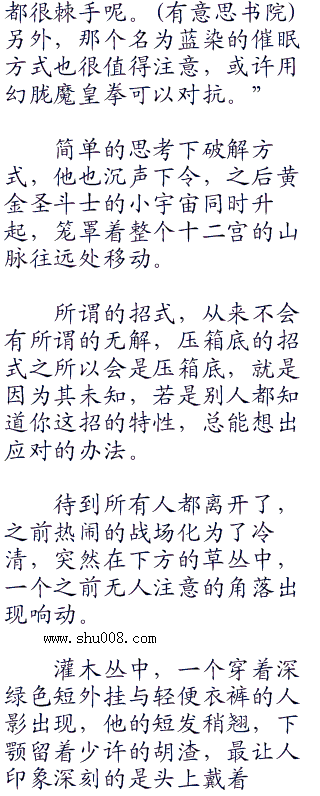 都很棘手呢。(有意思书院)
另外，那个名为蓝染的催眠
方式也很值得注意，或许用
幻胧魔皇拳可以对抗。”
简单的思考下破解方
式，他也沉声下令，之后黄
金圣斗士的小宇宙同时升
起，笼罩着整个十二宫的山
脉往远处移动。
所谓的招式，从来不会
有所谓的无解，压箱底的招
式之所以会是压箱底，就是
因为其未知，若是别人都知
道你这招的特性，总能想出
应对的办法。
待到所有人都离开了，
之前热闹的战场化为了冷
清，突然在下方的草丛中，
一个之前无人注意的角落出
现响动。
www.shu008.com
灌木丛中，一个穿着深
绿色短外挂与轻便衣裤的人
影出现，他的短发稍翘，下
颚留着少许的胡渣，最让人
印象深刻的是头上戴着